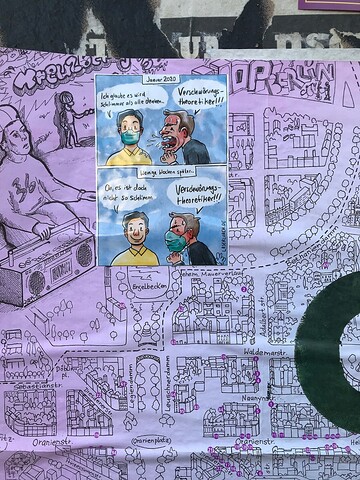 Kreuzberg
36
Januar 2020
Ich glaube es wird
schlimmer als alle denken...
Verschwörungs-
theoretiker!!!
Wenige Wochen später...
Oh, es ist doch
nicht so schlimm.
Verschwörungs-
theoretiker!!!
Engelbecken
ehem. Mauerverlauf
Adalbertstr.
Waldemarstr.
Legiendamm
Leuschnerdamm
Sebastianstr.
Naunynstr.
Oranienstr.
(Oranienplatz)
Oranienstr.